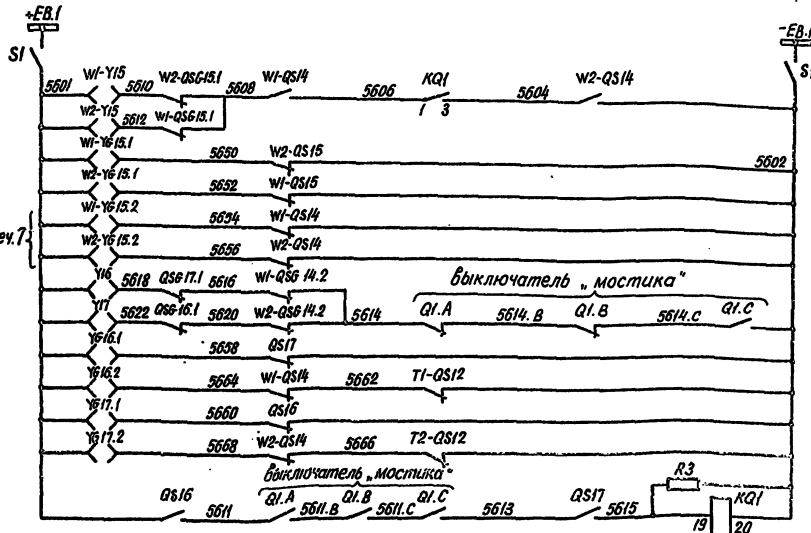 +ЕВ.1 -ЕВ.1
S1
5601 W1-Y15 5610 W2-QSG15.1 5608 W1-QS14 5606 KQ1 1 3 5604 W2-QS14
W2-Y15 5612 W1-QSG15.1
W1-YG15.1 5650 W2-QS15 5602
W2-YG15.1 5652 W1-QS15
W1-YG15.2 5654 W1-QS14
W2-YG15.2 5656 W2-QS14
Y16 5618 QSG17.1 5616 W1-QSG14.2
выключатель „мостика"
Y17 5622 QSG16.1 5620 W2-QSG14.2 5614 Q1.A 5614.B Q1.B 5614.C Q1.C
YG16.1 5658 QS17
YG16.2 5664 W1-QS14 5662 T1-QS12
YG17.1 5660 QS16
YG17.2 5668 W2-QS14 5666 T2-QS12
выключатель „мостика"
QS16 5611 Q1.A 5611.B Q1.B 5611.C Q1.C 5613 QS17 5615 R3
19 KQ1 20